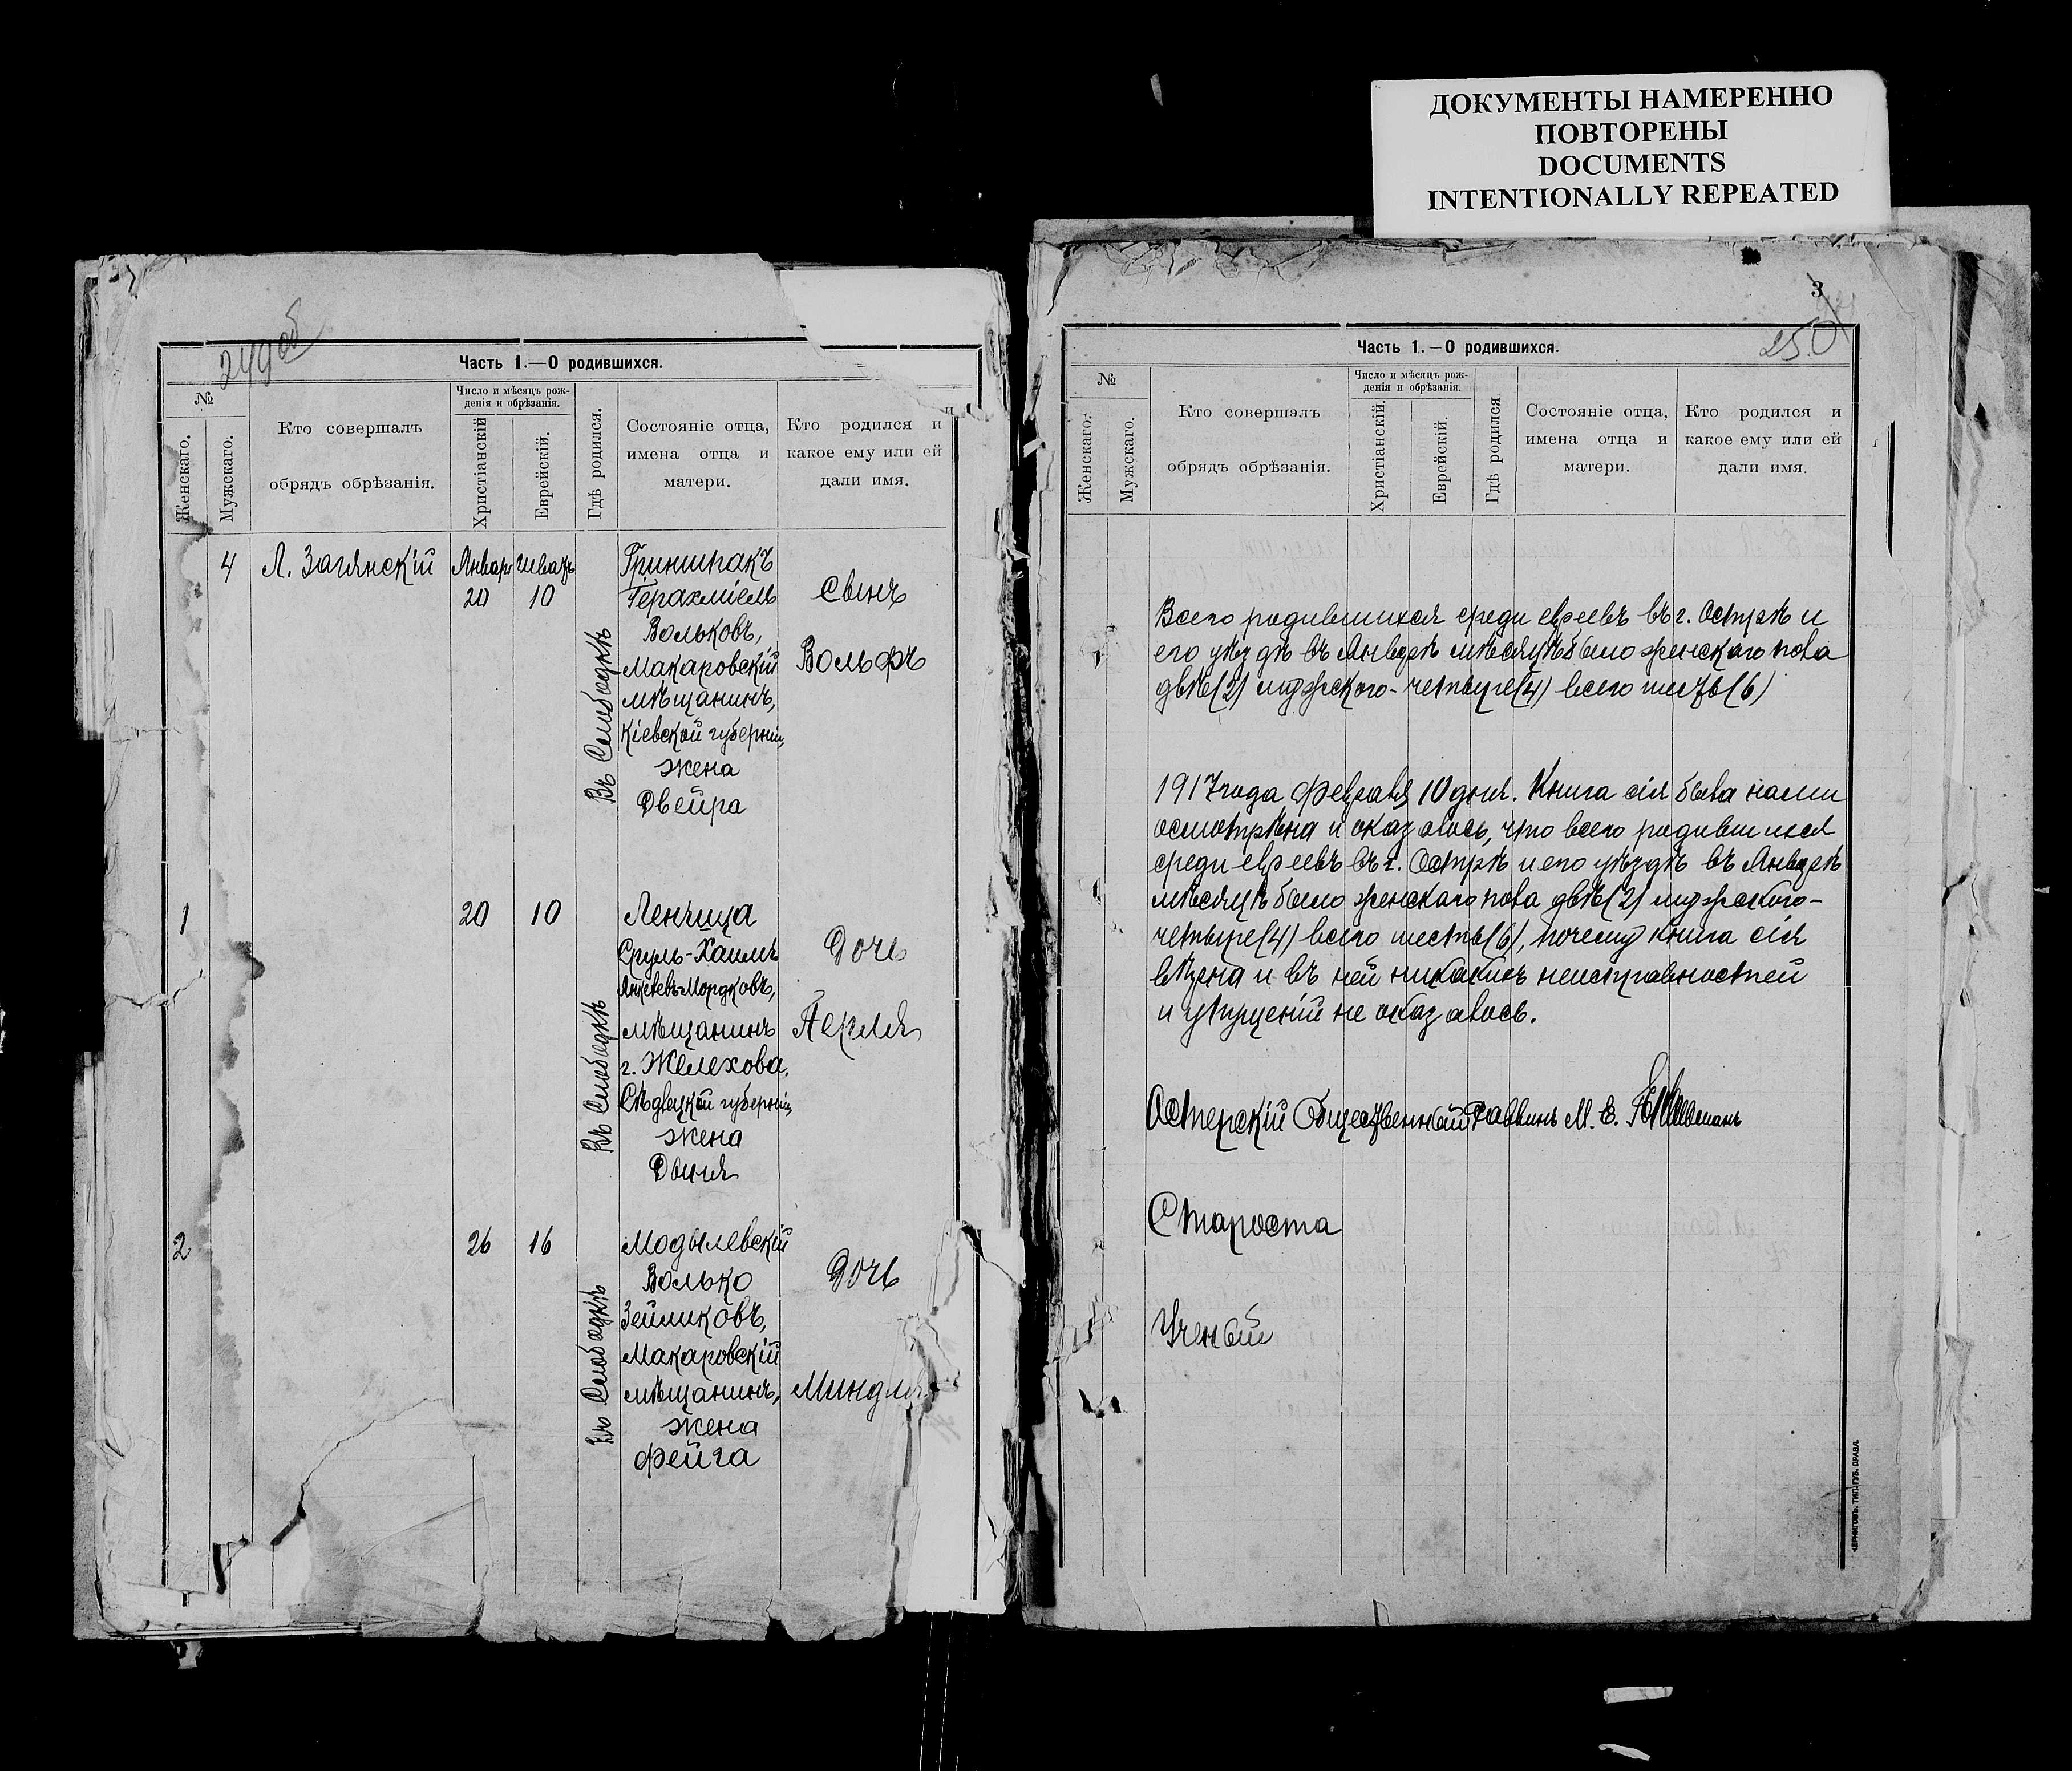 ДОКУМЕНТЫ НАМЕРЕННО
ПОВТОРЕНЫ
DOCUMENTS
INTENTIONALLY REPEATED
249об
Часть 1.—О родившихся.
№
Женскаго.
Мужскаго.
Кто совершалъ
обрядъ обрѣзанія.
Число и мѣсяцъ рож-
денія и обрѣзанія.
Христіанскій
Еврейскій.
Гдѣ родился.
Состояніе отца,
имена отца и
матери.
Кто родился и
какое ему или ей
дали имя.
4
Л. Заглянскій
Январ
20
Шватъ
10
Въ Слободкѣ
Гриншпакъ
Іерахміель
Вольковъ,
Макаровскій
мѣщанинъ,
Кіевской губерніи,
жена
Двейра
Сынъ
Вольфъ
1
20
10
Въ Слободкѣ
Ленчица
Сруль-Хаимъ
Янкелевъ-Мордковъ,
мѣщанинъ
г. Желехова,
Сѣдлецкой губерніи,
жена
Доня
Дочь
Перля
2
26
16
Въ Слободкѣ
Модылевскій
Волько
Зейликовъ,
Макаровскій
мѣщанинъ,
жена
Фейга
Дочь
Миндля
3
250
Часть 1.—О родившихся.
№
Женскаго.
Мужскаго.
Кто совершалъ
обрядъ обрѣзанія.
Число и мѣсяцъ рож-
денія и обрѣзанія.
Христіанскій.
Еврейскій.
Гдѣ родился
Состояніе отца,
имена отца и
матери.
Кто родился и
какое ему или ей
дали имя.
Всего родившихся среди евреевъ въ г. Острѣ и
его уѣздѣ въ Январѣ мѣсяцѣ было женскаго пола
двѣ(2) мужского-четыре(4) всего шесть(6)
1917 года Февраля 10 дня. Книга сія была нами
осмотрѣна и оказалось, что всего родившихся
среди евреевъ въ г. Острѣ и его уѣздѣ въ Январѣ
мѣсяцѣ было женскаго пола двѣ(2) мужского-
четыре(4) всего шесть(6), почему книга сія
вѣрна и въ ней никакихъ неисправностей
и упущеній не оказалось.
Остерскій Общественный Раввинъ М. Е.
Староста
Ученый
ЧЕРНИГОВЪ. ТИП. ГУБ. ПРАВЛ.